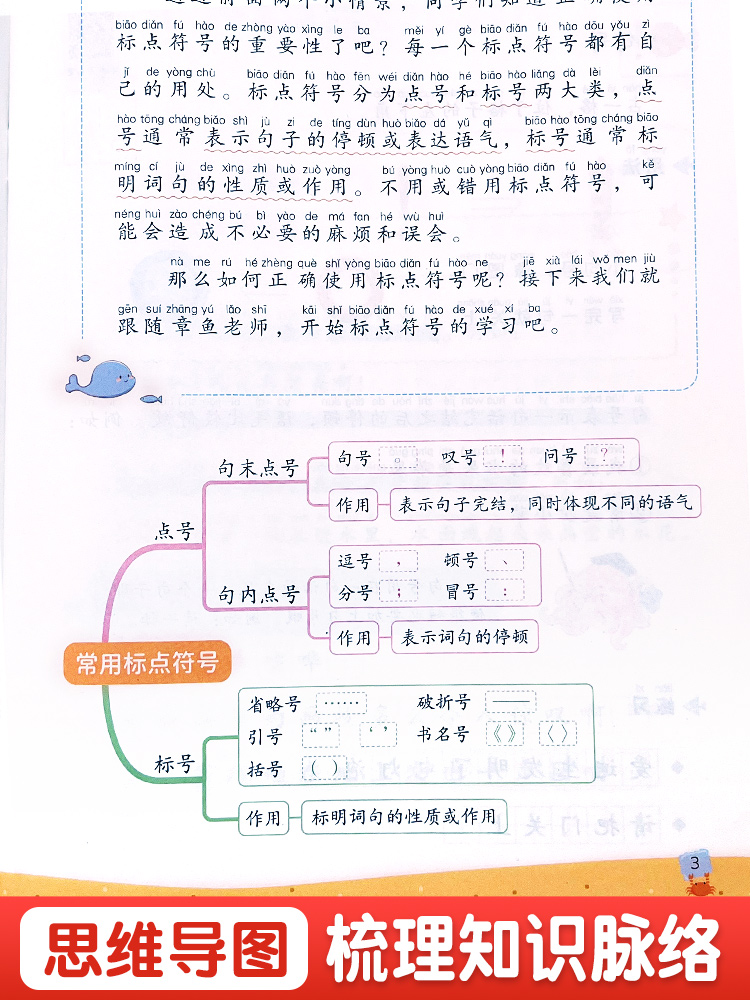 前面两个小情景，同学们知道正确使用
biāo diǎn fú hào de zhòng yào xìng le ba měi yí gè biāo diǎn fú hào dōu yǒu zì
标点符号的重要性了吧？每一个标点符号都有自
jǐ de yòng chù biāo diǎn fú hào fēn wéi diǎn hào hé biāo hào liǎng dà lèi diǎn
己的用处。标点符号分为点号和标号两大类，点
hào tōng cháng biǎo shì jù zi de tíng dùn huò biǎo dá yǔ qì biāo hào tōng cháng biāo
号通常表示句子的停顿或表达语气，标号通常标
míng cí jù de xìng zhì huò zuò yòng bú yòng huò cuò yòng biāo diǎn fú hào kě
明词句的性质或作用。不用或错用标点符号，可
néng huì zào chéng bú bì yào de má fan hé wù huì
能会造成不必要的麻烦和误会。
nà me rú hé zhèng què shǐ yòng biāo diǎn fú hào ne jiē xià lái wǒ men jiù
那么如何正确使用标点符号呢？接下来我们就
gēn suí zhāng yú lǎo shī kāi shǐ biāo diǎn fú hào de xué xí ba
跟随章鱼老师，开始标点符号的学习吧。
常用标点符号
点号
句末点号
句号 。 叹号 ！ 问号 ？
作用 表示句子完结，同时体现不同的语气
句内点号
逗号 ， 顿号 、
分号 ； 冒号 ：
作用 表示词句的停顿
标号
省略号 …… 破折号 ——
引号 “ ” ‘ ’ 书名号 《 》 〈 〉
括号 （ ）
作用 标明词句的性质或作用
3
思维导图 梳理知识脉络